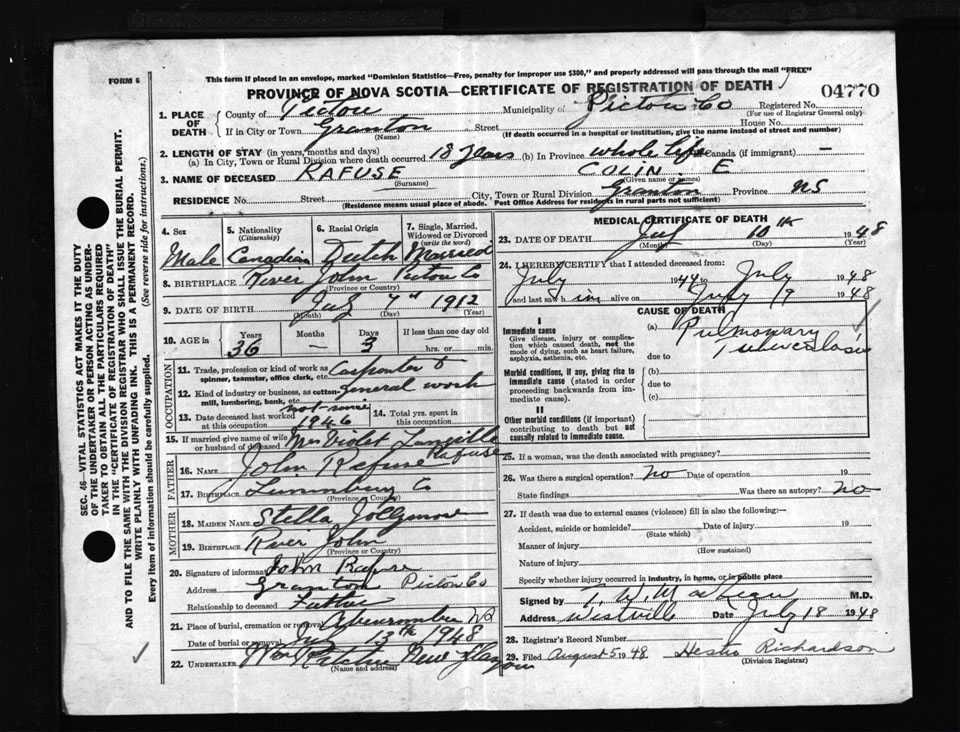 FORM 6
This form if placed in an envelope, marked "Dominion Statistics—Free, penalty for improper use $300," and properly addressed will pass through the mail "FREE"
PROVINCE OF NOVA SCOTIA—CERTIFICATE OF REGISTRATION OF DEATH
04770
1. PLACE OF DEATH
County of Pictou Municipality of Pictou Co Registered No.
(For use of Registrar General only)
If in City or Town Granton Street House No.
(Name) (If death occurred in a hospital or institution, give the name instead of street and number)
2. LENGTH OF STAY (in years, months and days)
(a) In City, Town or Rural Division where death occurred 18 Years (b) In Province whole life Canada (if immigrant) —
3. NAME OF DECEASED RAFUSE COLIN E
(Surname) (Given name or names)
RESIDENCE No. Street City, Town or Rural Division Granton Province NS
(Residence means usual place of abode. Post Office Address for residents in rural parts not sufficient)
4. Sex 5. Nationality (Citizenship) 6. Racial Origin 7. Single, Married, Widowed or Divorced (write the word)
Male Canadian Dutch Married
8. BIRTHPLACE River John Pictou Co
(Province or Country)
9. DATE OF BIRTH July 7th 1912
(Month) (Day) (Year)
10. AGE in Years Months Days If less than one day old
36 — 3 hrs. or min.
OCCUPATION
11. Trade, profession or kind of work as spinner, teamster, office clerk, etc. Carpenter &
12. Kind of industry or business, as cotton-mill, lumbering, bank, etc. General work
13. Date deceased last worked at this occupation not since 1946
14. Total yrs. spent in this occupation
15. If married give name of wife or husband of deceased Mrs Violet Langille Rafuse
FATHER
16. NAME John Rafuse
17. BIRTHPLACE Lunenburg Co
(Province or Country)
MOTHER
18. MAIDEN NAME Stella Jollymore
19. BIRTHPLACE River John
(Province or Country)
20. Signature of informant John Rafuse
Address Granton Pictou Co
Relationship to deceased Father
21. Place of burial, cremation or removal Abercrombie NS
Date of burial or removal July 13th 1948
22. UNDERTAKER Wm Ritchie New Glasgow
(Name and address)
MEDICAL CERTIFICATE OF DEATH
23. DATE OF DEATH July 10th 1948
(Month) (Day) (Year)
24. I HEREBY CERTIFY that I attended deceased from:
July 1944 to July 1948
and last saw h im alive on July 9 1948
CAUSE OF DEATH
I
Immediate cause
Give disease, injury or complication which caused death, not the mode of dying, such as heart failure, asphyxia, asthenia, etc.
(a) Pulmonary Tuberculosis
due to
Morbid conditions, if any, giving rise to immediate cause (stated in order proceeding backwards from immediate cause).
(b)
due to
(c)
II
Other morbid conditions (if important) contributing to death but not causally related to immediate cause.
25. If a woman, was the death associated with pregnancy?
26. Was there a surgical operation? No Date of operation 19
State findings Was there an autopsy? No
27. If death was due to external causes (violence) fill in also the following:—
Accident, suicide or homicide? Date of injury 19
(State which)
Manner of injury
(How sustained)
Nature of injury
Specify whether injury occurred in industry, in home, or in public place
Signed by M.D.
Address Westville Date July 18 1948
28. Registrar's Record Number
29. Filed August 5 1948 Richardson
(Division Registrar)
SEC. 46—VITAL STATISTICS ACT MAKES IT THE DUTY
OF THE UNDERTAKER OR PERSON ACTING AS UNDER-
TAKER TO OBTAIN ALL THE PARTICULARS REQUIRED
IN THE "CERTIFICATE OF REGISTRATION OF DEATH"
AND TO FILE THE SAME WITH THE DIVISION REGISTRAR WHO SHALL ISSUE THE BURIAL PERMIT.
WRITE PLAINLY WITH UNFADING INK. THIS IS A PERMANENT RECORD.
Every item of information should be carefully supplied. (See reverse side for instructions.)